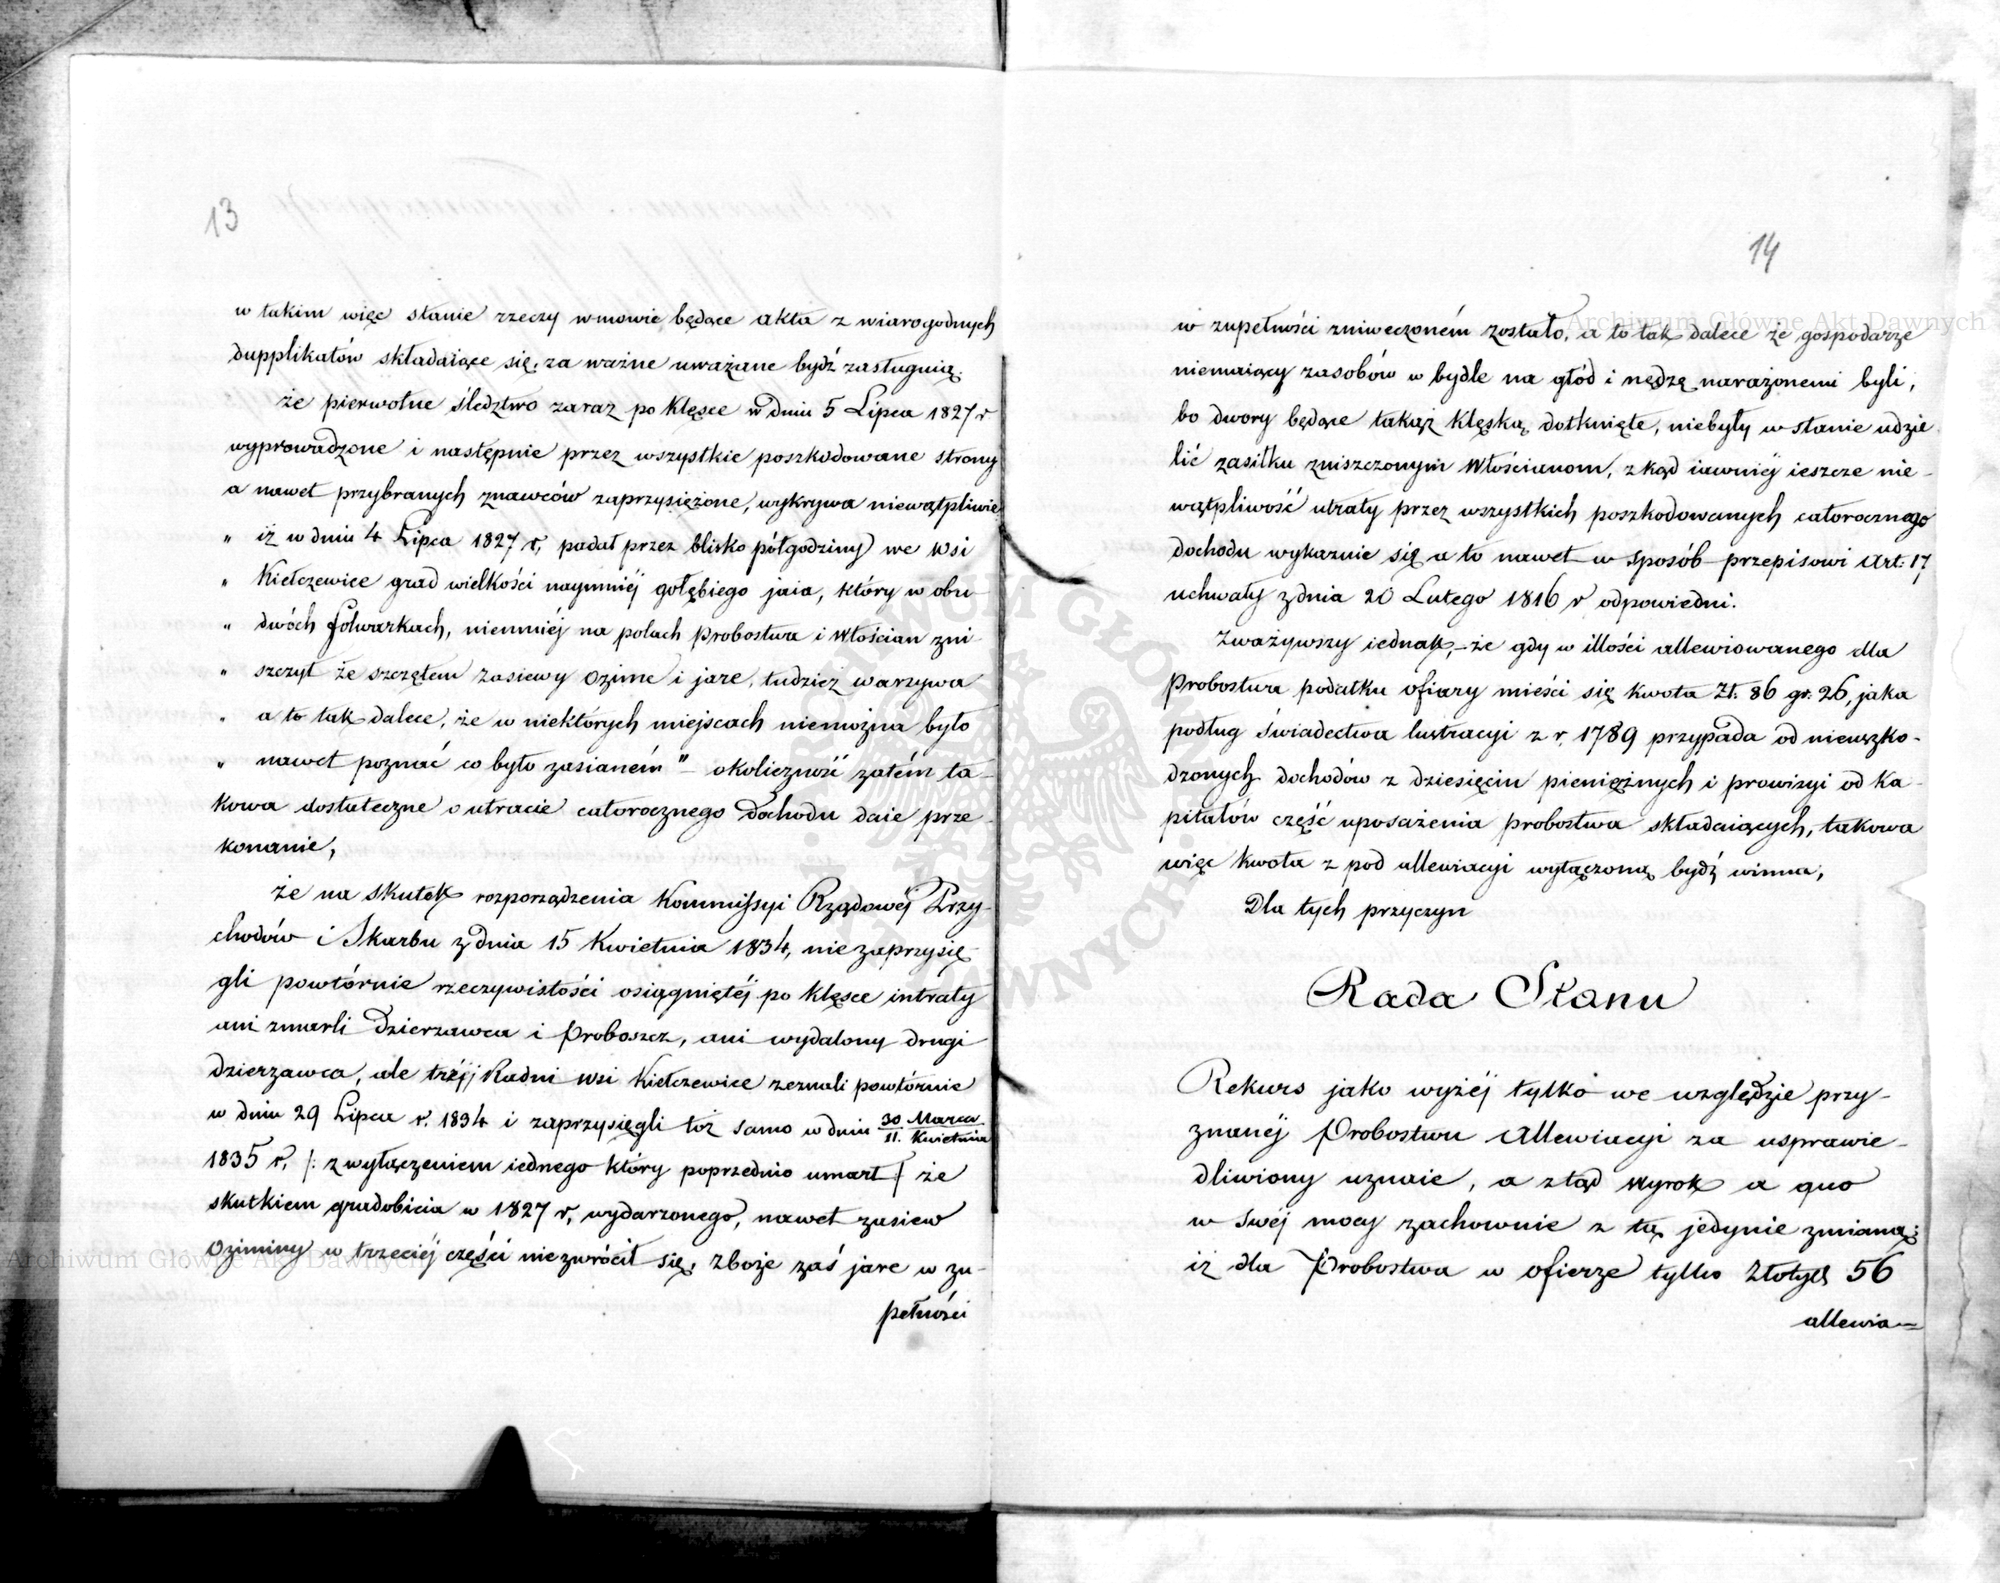 13
w takim więc stanie rzeczy w mowie będące akta z wiarogodnych
dupplikatów składaiące się, za ważne uważane bydź zasługuią.
że pierwotne śledztwo zaraz po klęsce w dniu 5 Lipca 1827 r
wyprowadzone i następnie przez wszystkie poszkodowane strony
a nawet przybranych znawców zaprzysiężone, wykrywa niewątpliwie
" iż w dniu 4 Lipca 1827 r, padał przez blisko półgodziny we Wsi
" Kiełczewice grad wielkości naymniéj gołębiego jaia, który w obu
" dwóch folwarkach, niemniéj na polach Probostwa i Włościan zni
" szczył ze szczętem zasiewy ozime i jare, tudzież warzywa
" a to tak dalece, że w niektórych miejscach niemożna było
" nawet poznać co było zasianém" – okoliczność zatém ta-
kowa dostateczne o utracie całorocznego dochodu daie prze-
konanie,
że na skutek rozporządzenia Kommissyi Rządowéj Przy-
chodów i Skarbu z dnia 15 Kwietnia 1834, nie zaprzysię-
gli powtórnie rzeczywistości osiągniętéj po klęsce intraty
ani zmarli Dzierzawca i Proboszcz, ani wydalony drugi
dzierzawca, ale trzéj Radni wsi Kiełczewice zeznali powtórnie
w dniu 29 Lipca r. 1834 i zaprzysięgli toż samo w dniu 30 Marca / 11. Kwietnia
1835 r, /: z wyłączeniem iednego który poprzednio umarł :/ że
skutkiem gradobicia w 1827 r, wydarzonego, nawet zasiew
Oziminy w trzeciéj części niezwrócił się, zboże zaś jare w zu-
pełności
14
w zupełności zniweczoném zostało, a to tak dalece że gospodarze
niemaiący zasobów w bydle na głód i nędzę narażonemi byli,
bo dwory będące takąż klęską dotknięte, niebyły w stanie udzie
lić zasiłku zniszczonym Włościanom, z kąd iawniéj ieszcze nie-
wątpliwość utraty przez wszystkich poszkodowanych całorocznego
dochodu wykazuie się a to nawet w sposób przepisowi Art: 17
uchwały z dnia 20 Lutego 1816 r odpowiedni.
Zważywszy iednak, – że gdy w illości allewiowanego dla
Probostwa podatku ofiary mieści się kwota Zł. 86 gr: 26, jaka
podług świadectwa lustracyi z r, 1789 przypada od nieuszko-
dzonych dochodów z dziesięcin pieniężnych i prowizyi od ka-
pitałów część uposażenia probostwa składaiących, takowa
więc kwota z pod allewiacyi wyłączoną bydź winna,
Dla tych przyczyn
Rada Stanu
Rekurs jako wyżéj tylko we względzie przy-
znanéj Probostwu Allewiacyi za usprawie-
dliwiony uznaie, a ztąd Wyrok a quo
w swéj mocy zachownie z tą jedynie zmianą;
iż dla Probostwa w ofierze tylko Złotych 56
allewia=
Archiwum Główne Akt Dawnych
Archiwum Główne Akt Dawnych